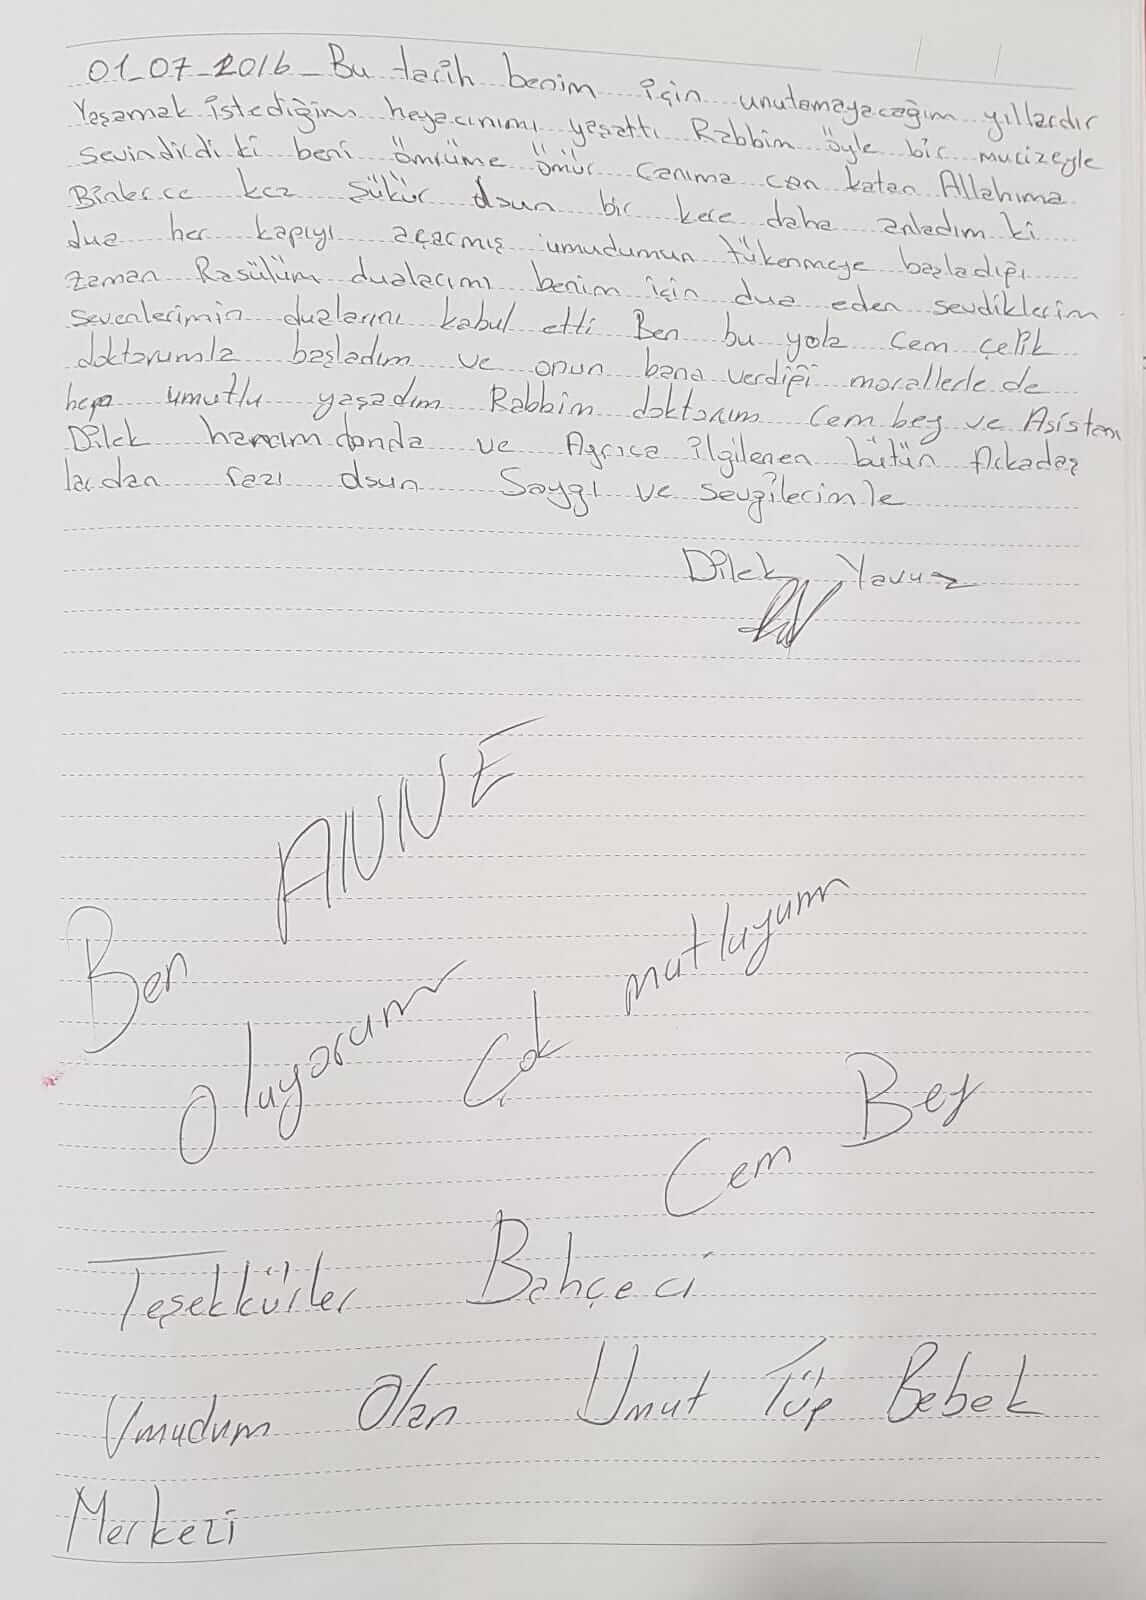 01_07_2016_Bu tarih benim için unutamayacağım yıllardır
Yaşamak istediğim heyacınımı yaşattı Rabbim öyle bir mucizeyle
sevindirdi ki beni ömrüme ömür canıma can katan Allahıma
Binlerce kez şükür olsun bir kere daha anladım ki
dua her kapıyı açarmış umudumun tükenmeye başladığı
zaman Rasülüm dualarımı benim için dua eden sevdiklerim
sevenlerimin dualarını kabul etti Ben bu yola Cem Çelik
doktorumla başladım ve onun bana verdiği morallerle de
hep umutlu yaşadım Rabbim doktorum Cem bey ve Asistan
Dilek hanımdanda ve Ayrıca ilgilenen bütün Arkadaş
lardan razı olsun Saygı ve sevgilerimle
Dilek Yavuz
Ben ANNE
Oluyorum Çok mutluyum
Cem Bey
Teşekkürler Bahçeci
Umudum Olan Umut Tüp Bebek
Merkezi